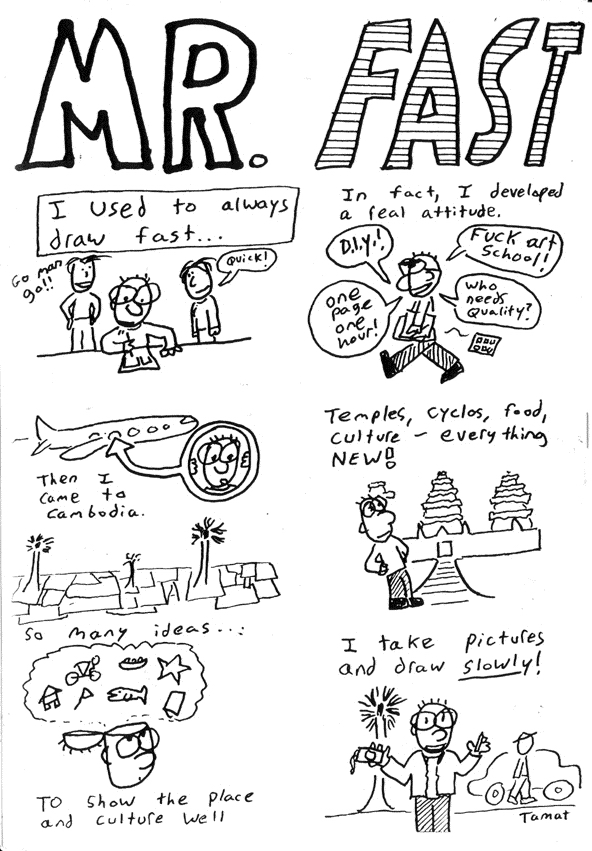 MR. FAST
I used to always
draw fast...
Go man
go!!
Quick!
In fact, I developed
a real attitude.
D.I.Y.!
Fuck art
School!!
one
page
one
hour!
Who
needs
Quality?
Then I
came to
Cambodia.
Temples, cyclos, food,
culture – everything
NEW!
So many ideas...
To show the place
and culture well
I take pictures
and draw slowly!
Tamat